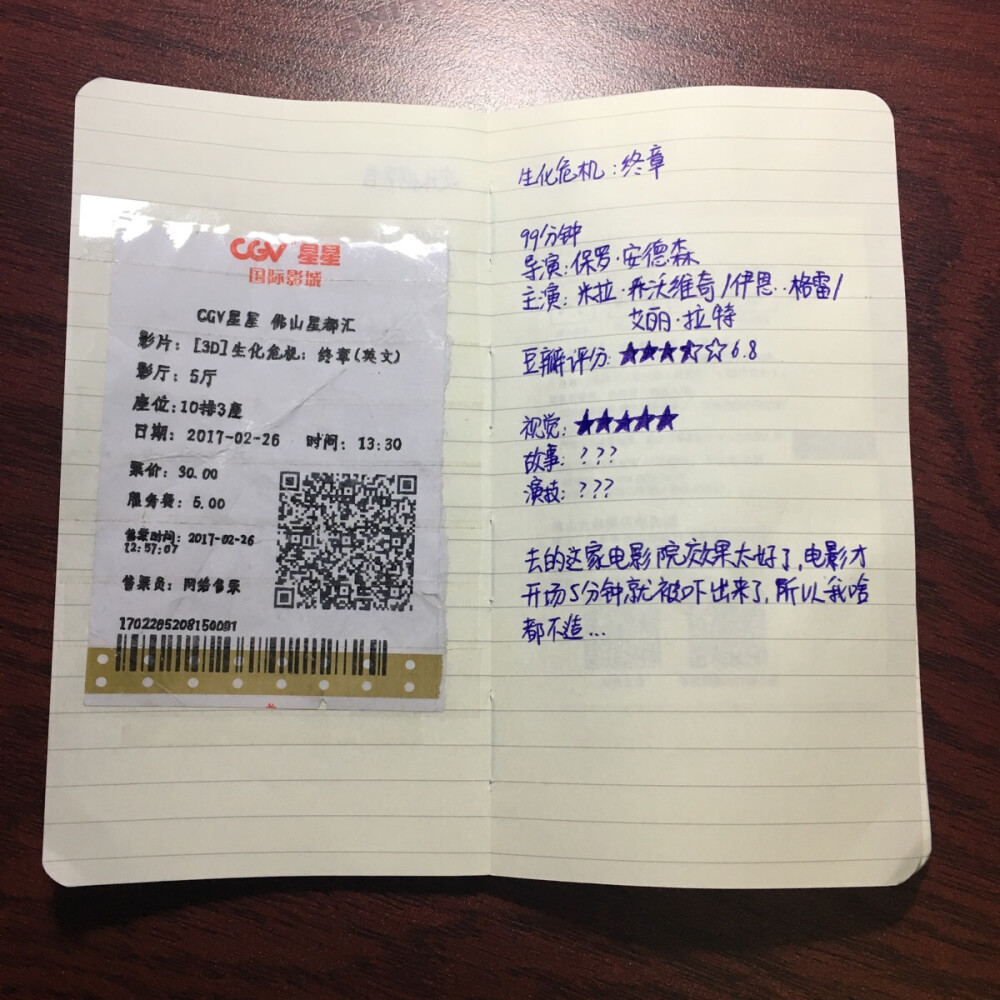 CGV 星星
国际影城
CGV星星 佛山星都汇
影片：[3D]生化危机：终章(英文)
影厅：5厅
座位：10排3座
日期：2017-02-26 时间：13:30
票价：30.00
服务费：5.00
售票时间：2017-02-26
12:57:07
售票员：网络售票
1702265208150091
生化危机：终章
99分钟
导演：保罗·安德森
主演：米拉·乔沃维奇/伊恩·格雷/
艾丽·拉特
豆瓣评分：★★★⯪☆6.8
视觉：★★★★★
故事：???
演技：???
去的这家电影院效果太好了，电影才
开场5分钟就被吓出来了，所以我啥
都不造...